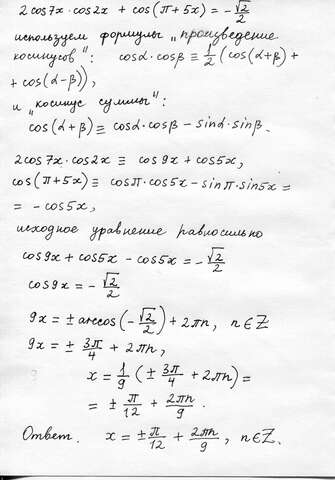 2cos7x·cos2x + cos(π+5x) = -√2/2
используем формулы „произведение
косинусов": cosα·cosβ ≡ 1/2 (cos(α+β) +
+ cos(α-β)),
и „косинус суммы":
cos(α+β) ≡ cosα·cosβ - sinα·sinβ.
2cos7x·cos2x ≡ cos9x + cos5x,
cos(π+5x) ≡ cosπ·cos5x - sinπ·sin5x =
= -cos5x,
исходное уравнение равносильно
cos9x + cos5x - cos5x = -√2/2
cos9x = -√2/2
9x = ± arccos(-√2/2) + 2πn, n∈Z
9x = ± 3π/4 + 2πn,
x = 1/9 (± 3π/4 + 2πn) =
= ± π/12 + 2πn/9.
Ответ. x = ± π/12 + 2πn/9, n∈Z.